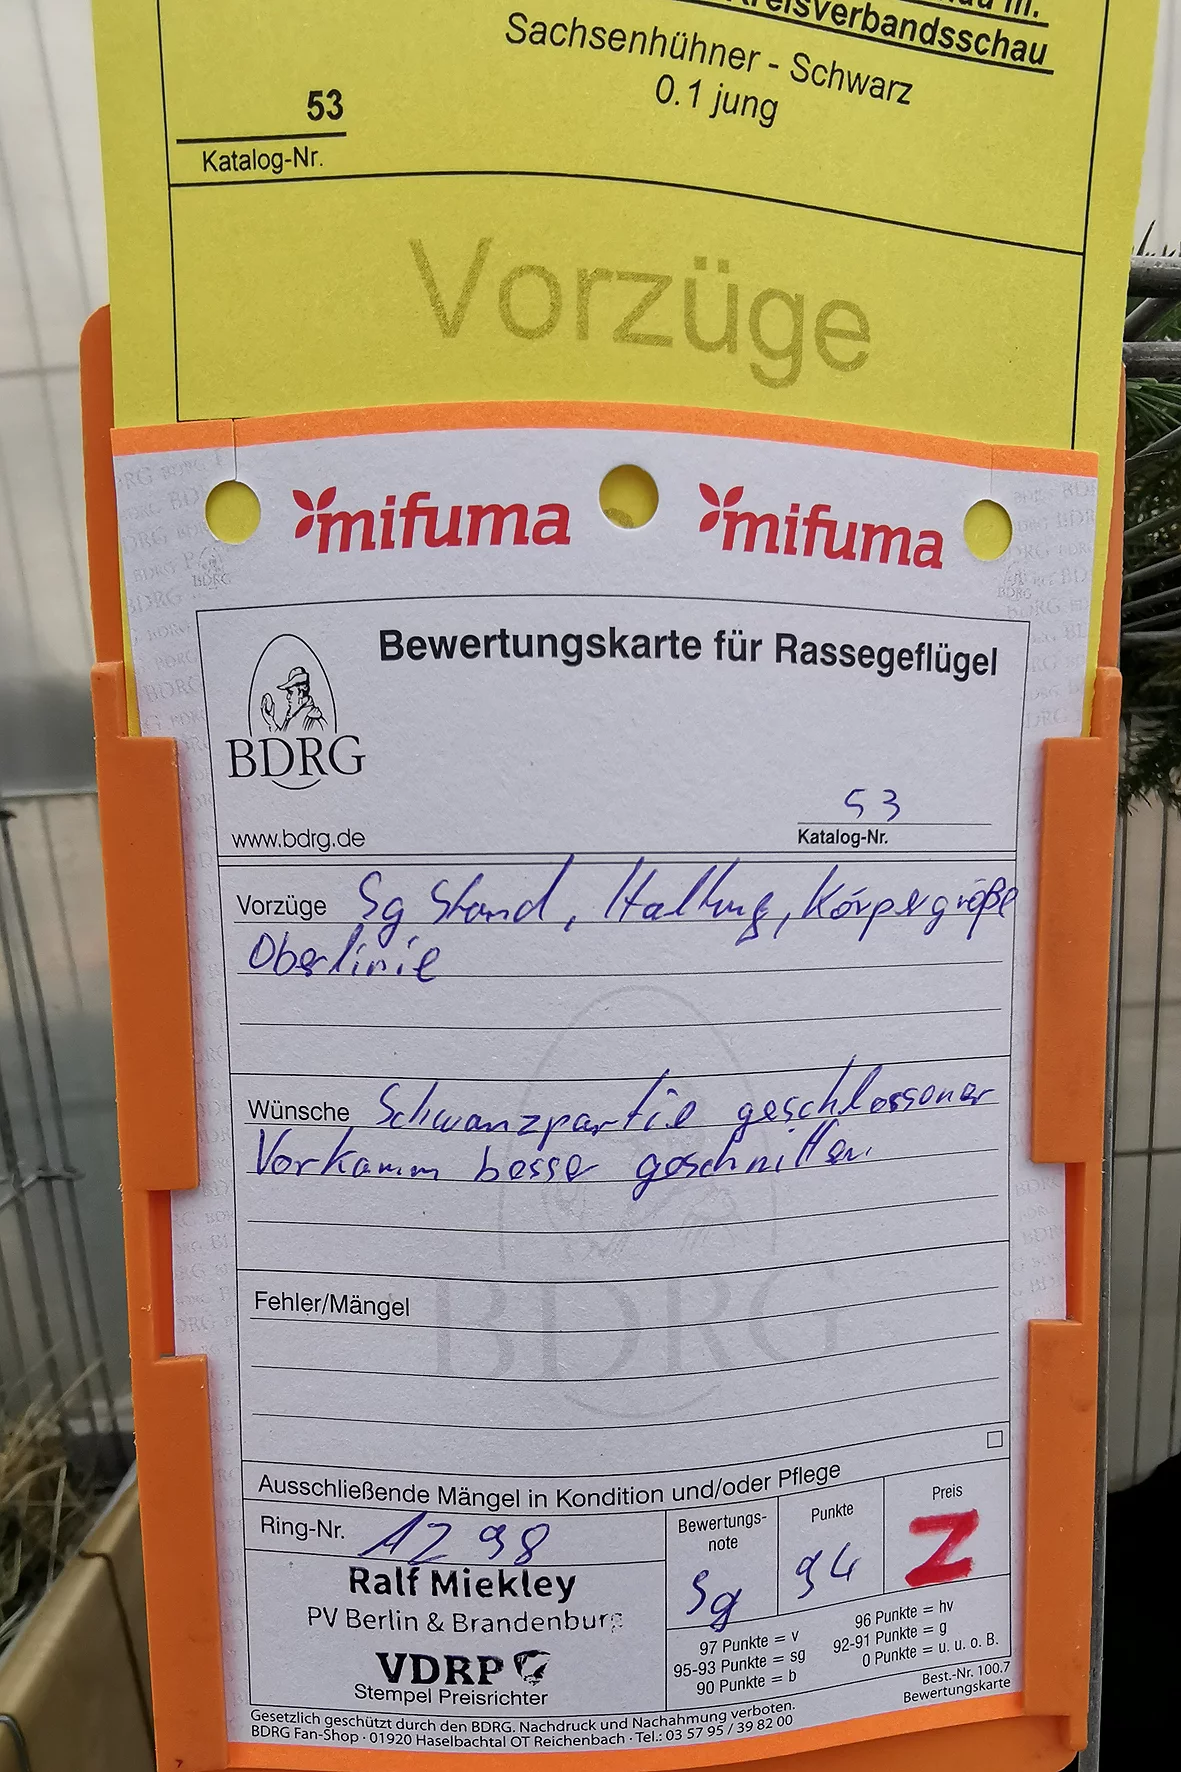 Kreisverbandsschau
Sachsenhühner - Schwarz
0.1 jung
53
Katalog-Nr.
Vorzüge
mifuma mifuma
Bewertungskarte für Rassegeflügel
BDRG
www.bdrg.de
53
Katalog-Nr.
Vorzüge Sg Stand, Haltung, Körpergröße
Oberlinie
Wünsche Schwanzpartie geschlossener
Vorkamm besser geschnitten.
Fehler/Mängel
BDRG
Ausschließende Mängel in Kondition und/oder Pflege
Ring-Nr. 1298
Bewertungs-
note
Sg
Punkte
94
Preis
Z
Ralf Miekley
PV Berlin & Brandenburg
VDRP
Stempel Preisrichter
97 Punkte = v
95-93 Punkte = sg
90 Punkte = b
96 Punkte = hv
92-91 Punkte = g
0 Punkte = u. u. o. B.
Best.-Nr. 100.7
Bewertungskarte
Gesetzlich geschützt durch den BDRG. Nachdruck und Nachahmung verboten.
BDRG Fan-Shop · 01920 Haselbachtal OT Reichenbach · Tel.: 03 57 95 / 39 82 00